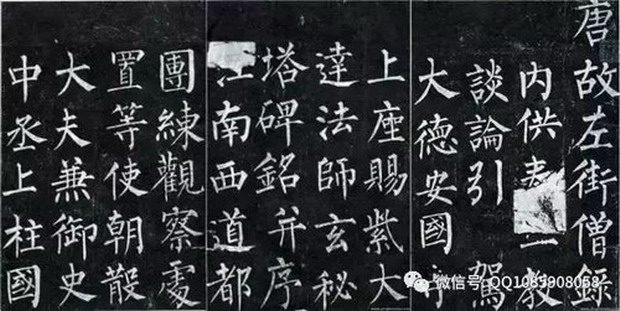 唐故左街僧錄
內供教
談論引駕
大德安國寺
上座賜紫大
達法師玄秘
塔碑銘并序
江南西道都
團練觀察處
置等使朝散
大夫兼御史
中丞上柱國
微信号: QQ1085908058